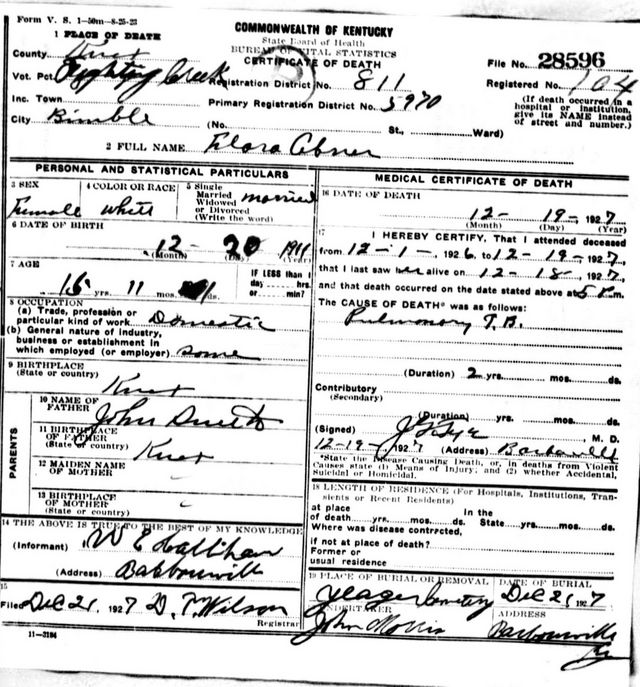 Form V. S. 1—50m—8-25-23
COMMONWEALTH OF KENTUCKY
State Board of Health
BUREAU OF VITAL STATISTICS
CERTIFICATE OF DEATH
1 PLACE OF DEATH
County Knox
Vot. Pct. Fighting Creek
Inc. Town
City Bimble
File No. 28596
Registration District No. 811
Registered No. 104
Primary Registration District No. 5970
(If death occurred in a hospital or institution, give its NAME instead of street and number.)
(No. St., Ward)
2 FULL NAME Flora Abner
PERSONAL AND STATISTICAL PARTICULARS
3 SEX Female
4 COLOR OR RACE White
5 Single Married Widowed or Divorced (Write the word) married
6 DATE OF BIRTH
12- 20 1911
(Month) (Day) (Year)
7 AGE
15 yrs. 11 mos. ds.
IF LESS than 1 day hrs. or min.
8 OCCUPATION
(a) Trade, profession or particular kind of work Domestic
(b) General nature of industry, business or establishment in which employed (or employer) same
9 BIRTHPLACE
(State or country) Knox
PARENTS
10 NAME OF FATHER John
11 BIRTHPLACE OF FATHER (State or country) Knox
12 MAIDEN NAME OF MOTHER
13 BIRTHPLACE OF MOTHER (State or country)
14 THE ABOVE IS TRUE TO THE BEST OF MY KNOWLEDGE
(Informant) W E
(Address) Barbourville
15
Filed Dec 21, 1927 D. T. Wilson
Registrar
11—3184
MEDICAL CERTIFICATE OF DEATH
16 DATE OF DEATH
12- 19-, 1927
(Month) (Day) (Year)
17 I HEREBY CERTIFY, That I attended deceased
from 12-1-, 1926, to 12-19-, 1927,
that I last saw her alive on 12-18-, 1927,
and that death occurred on the date stated above at 5 P.m.
The CAUSE OF DEATH* was as follows:
Pulmonary T.B.
(Duration) 2 yrs. mos. ds.
Contributory
(Secondary)
(Duration) yrs. mos. ds.
(Signed) M. D.
12-19-, 1927 (Address)
*State the Disease Causing Death, or, in deaths from Violent Causes state (1) Means of Injury; and (2) whether Accidental, Suicidal or Homicidal.
18 LENGTH OF RESIDENCE (For Hospitals, Institutions, Transients or Recent Residents)
at place of death yrs. mos. ds. In the State yrs. mos. ds.
Where was disease contracted, if not at place of death?
Former or usual residence
19 PLACE OF BURIAL OR REMOVAL
Yeager Cemetery
DATE OF BURIAL
Dec 21, 1927
UNDERTAKER
John Morris
ADDRESS
Barbourville Ky